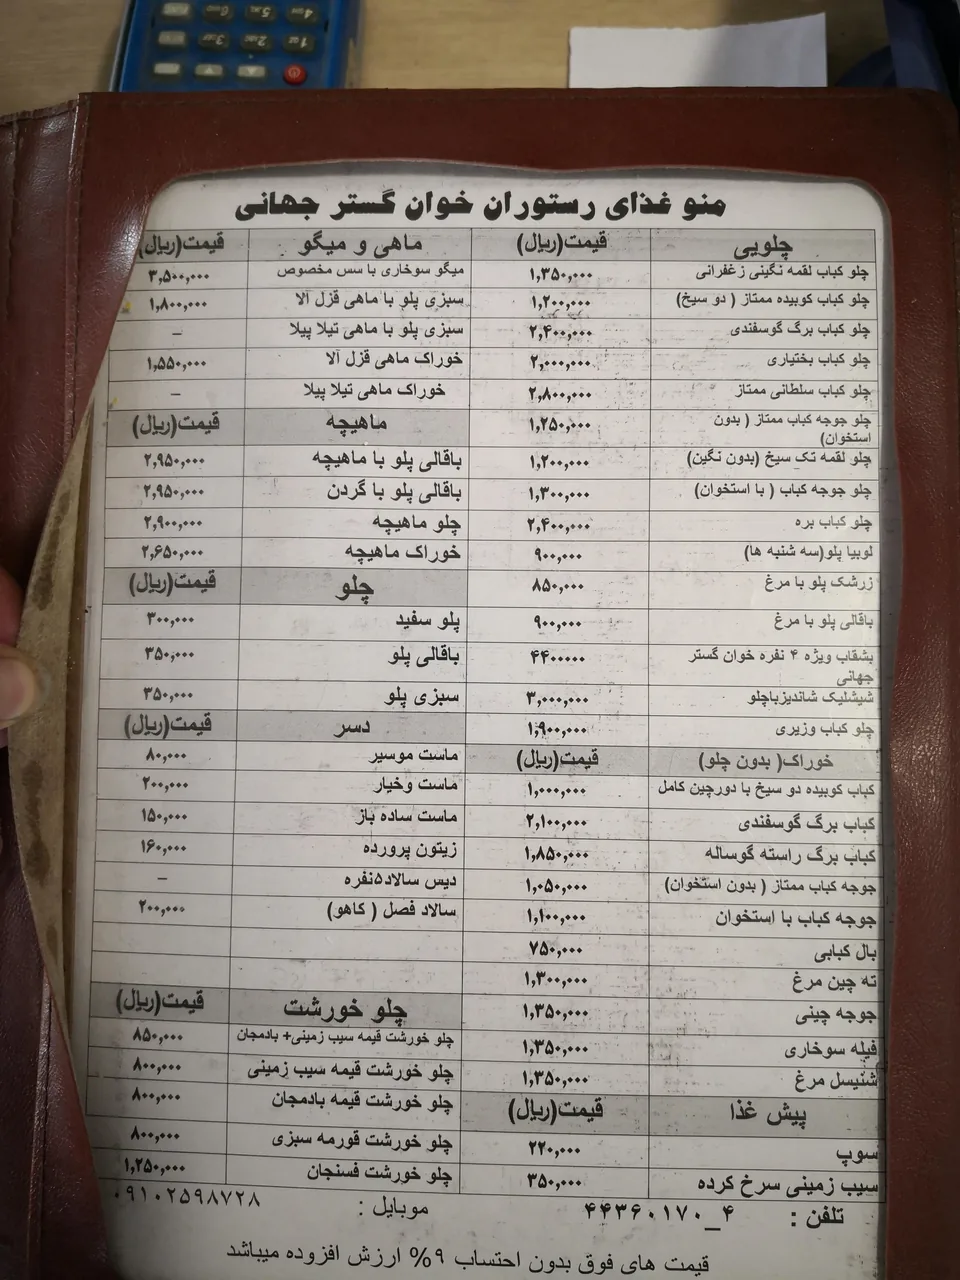 منو غذای رستوران خوان گستر جهانی
چلویی قیمت(ریال)
چلو کباب لقمه نگینی زعفرانی ۱,۳۵۰,۰۰۰
چلو کباب کوبیده ممتاز ( دو سیخ) ۱,۲۰۰,۰۰۰
چلو کباب برگ گوسفندی ۲,۴۰۰,۰۰۰
چلو کباب بختیاری ۲,۰۰۰,۰۰۰
چلو کباب سلطانی ممتاز ۲,۸۰۰,۰۰۰
چلو جوجه کباب ممتاز ( بدون ۱,۲۵۰,۰۰۰
استخوان)
چلو لقمه تک سیخ (بدون نگین) ۱,۲۰۰,۰۰۰
چلو جوجه کباب ( با استخوان) ۱,۳۰۰,۰۰۰
چلو کباب بره ۲,۴۰۰,۰۰۰
لوبیا پلو(سه شنبه ها) ۹۰۰,۰۰۰
زرشک پلو با مرغ ۸۵۰,۰۰۰
باقالی پلو با مرغ ۹۰۰,۰۰۰
بشقاب ویژه ۴ نفره خوان گستر ۴۴۰۰۰۰۰
جهانی
شیشلیک شاندیزباچلو ۳,۰۰۰,۰۰۰
چلو کباب وزیری ۱,۹۰۰,۰۰۰
خوراک( بدون چلو) قیمت(ریال)
کباب کوبیده دو سیخ با دورچین کامل ۱,۰۰۰,۰۰۰
کباب برگ گوسفندی ۲,۱۰۰,۰۰۰
کباب برگ راسته گوساله ۱,۸۵۰,۰۰۰
جوجه کباب ممتاز ( بدون استخوان) ۱,۰۵۰,۰۰۰
جوجه کباب با استخوان ۱,۱۰۰,۰۰۰
بال کبابی ۷۵۰,۰۰۰
ته چین مرغ ۱,۳۰۰,۰۰۰
جوجه چینی ۱,۳۵۰,۰۰۰
فیله سوخاری ۱,۳۵۰,۰۰۰
شنیسل مرغ ۱,۳۵۰,۰۰۰
پیش غذا قیمت(ریال)
سوپ ۲۲۰,۰۰۰
سیب زمینی سرخ کرده ۳۵۰,۰۰۰
ماهی و میگو قیمت(ریال)
میگو سوخاری با سس مخصوص ۳,۵۰۰,۰۰۰
سبزی پلو با ماهی قزل آلا ۱,۸۰۰,۰۰۰
سبزی پلو با ماهی تیلا پیلا –
خوراک ماهی قزل آلا ۱,۵۵۰,۰۰۰
خوراک ماهی تیلا پیلا –
ماهیچه قیمت(ریال)
باقالی پلو با ماهیچه ۲,۹۵۰,۰۰۰
باقالی پلو با گردن ۲,۹۵۰,۰۰۰
چلو ماهیچه ۲,۹۰۰,۰۰۰
خوراک ماهیچه ۲,۶۵۰,۰۰۰
چلو قیمت(ریال)
پلو سفید ۳۰۰,۰۰۰
باقالی پلو ۳۵۰,۰۰۰
سبزی پلو ۳۵۰,۰۰۰
دسر قیمت(ریال)
ماست موسیر ۸۰,۰۰۰
ماست وخیار ۲۰۰,۰۰۰
ماست ساده باز ۱۵۰,۰۰۰
زیتون پرورده ۱۶۰,۰۰۰
دیس سالاد۵نفره –
سالاد فصل ( کاهو) ۲۰۰,۰۰۰
چلو خورشت قیمت(ریال)
چلو خورشت قیمه سیب زمینی+ بادمجان ۸۵۰,۰۰۰
چلو خورشت قیمه سیب زمینی ۸۰۰,۰۰۰
چلو خورشت قیمه بادمجان ۸۰۰,۰۰۰
چلو خورشت قورمه سبزی ۸۰۰,۰۰۰
چلو خورشت فسنجان ۱,۲۵۰,۰۰۰
تلفن : ۴_۴۴۳۶۰۱۷۰ موبایل : ۰۹۱۰۲۵۹۸۷۲۸
قیمت های فوق بدون احتساب ۹% ارزش افزوده میباشد